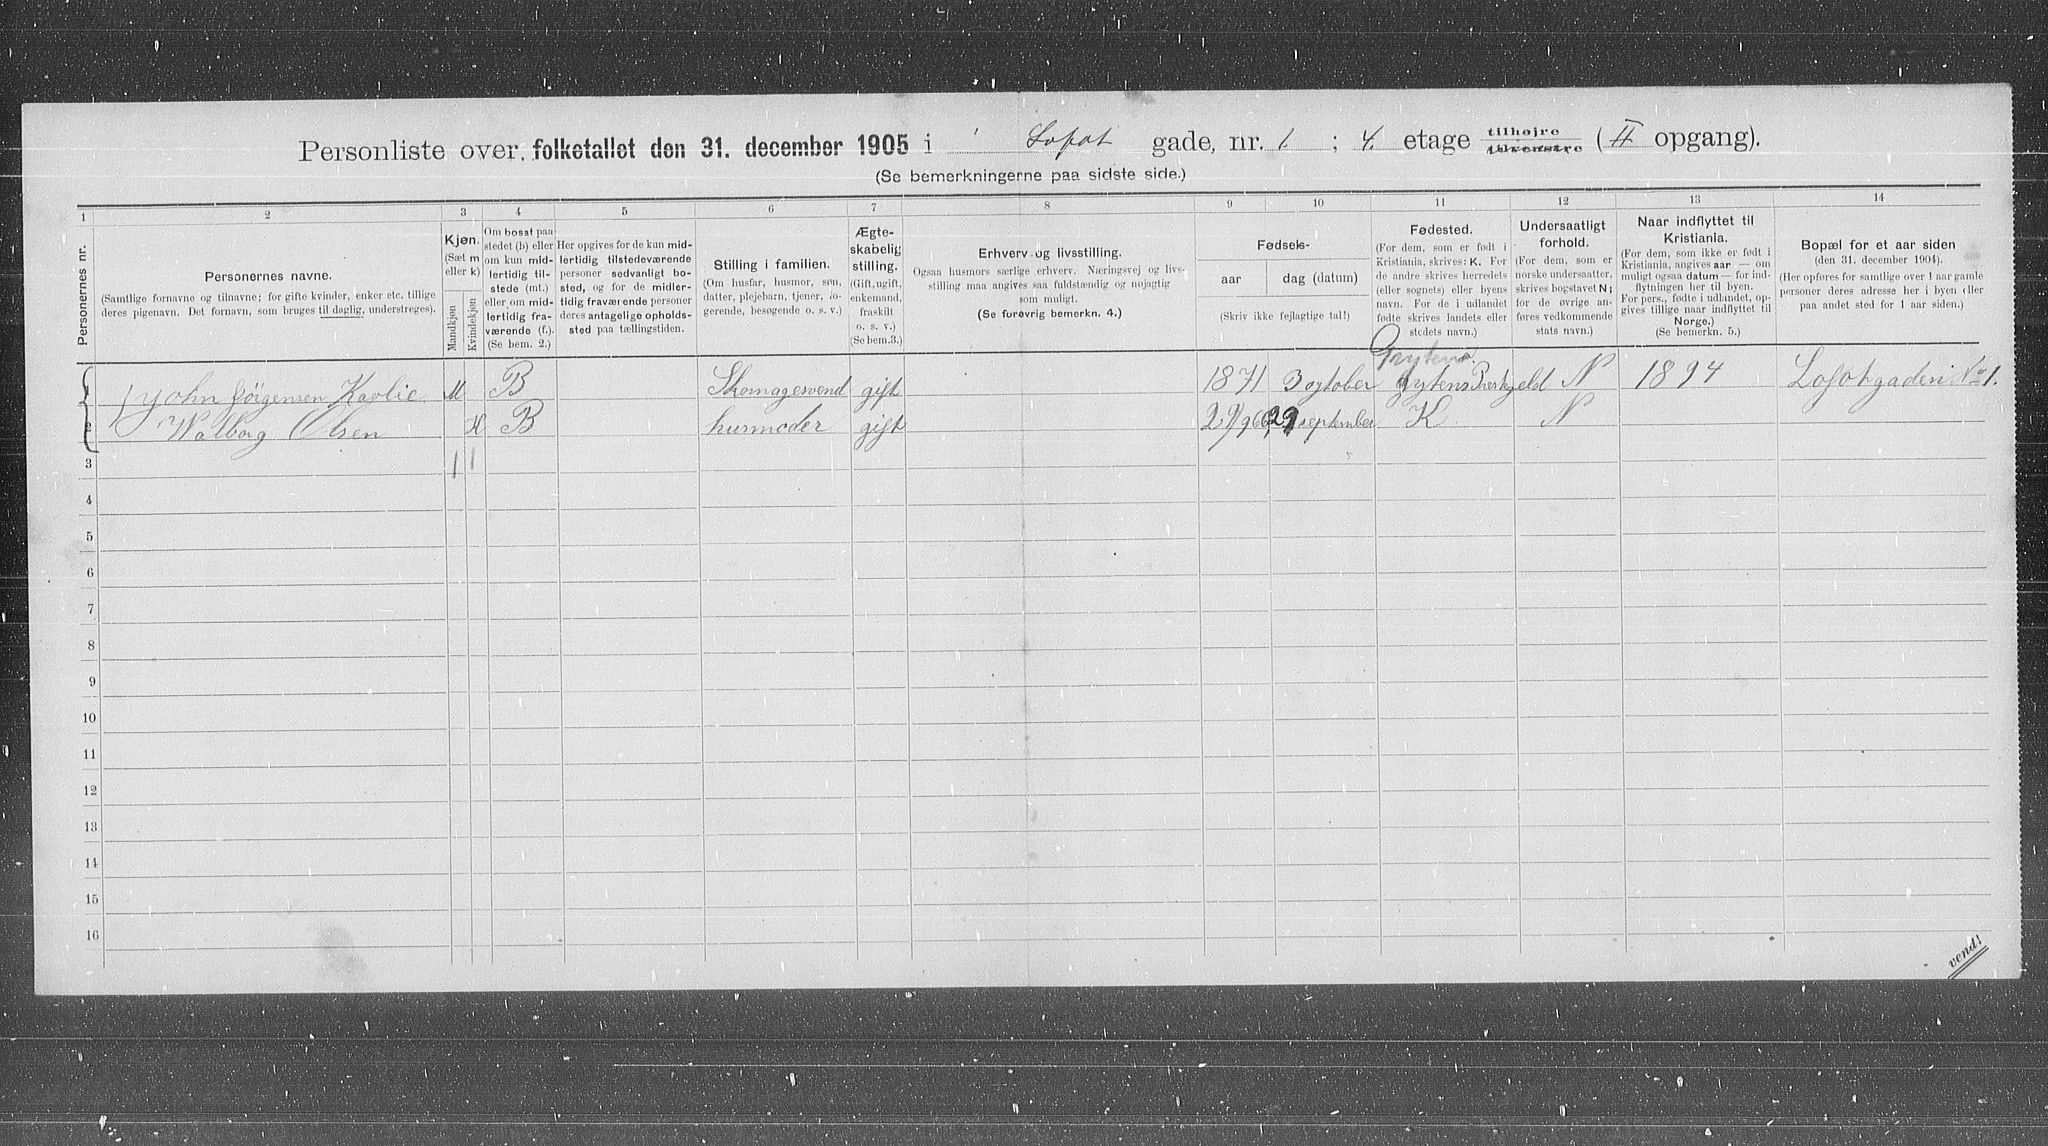 Personliste over folketallet den 31. december 1905 i Lofot gade, nr. 1 ; 4. etage tilhøjre tilvenstre (II opgang).
(Se bemerkningerne paa sidste side.)
1 2 3 4 5 6 7 8 9 10 11 12 13 14
Personernes nr.
Personernes navne.
(Samtlige fornavne og tilnavne; for gifte kvinder, enker etc. tillige
deres pigenavn. Det fornavn, som bruges til daglig, understreges).
Kjøn.
(Sæt m
eller k)
Mandkjøn
Kvindekjøn
Om bosat paa
stedet (b) eller
om kun mid-
lertidig til-
stede (mt.)
eller om mid-
lertidig fra-
værende (f.).
(Se bem. 2.)
Her opgives for de kun mid-
lertidig tilstedeværende
personer sedvanligt bo-
sted, og for de midler-
tidig fraværende personer
deres antagelige opholds-
sted paa tællingstiden.
Stilling i familien.
(Om husfar, husmor, søn,
datter, plejebarn, tjener, lo-
gerende, besøgende o. s. v.)
Ægte-
skabelig
stilling.
(Gift, ugift,
enkemand,
fraskilt
o. s. v.)
(Se bem.3.)
Erhverv og livsstilling.
Ogsaa husmors særlige erhverv. Næringsvej og livs-
stilling maa angives saa fuldstændig og nøjagtig
som muligt.
(Se forøvrig bemerkn. 4.)
Fødsels-
aar
dag (datum)
(Skriv ikke fejlagtige tal!)
Fødested.
(For dem, som er født i
Kristiania, skrives: K. For
de andre skrives herredets
(eller sognets) eller byens
navn. For de i udlandet
fødte skrives landets eller
stedets navn.)
Undersaatligt
forhold.
(For dem, som er
norske undersaatter,
skrives bogstavet N;
for de øvrige an-
føres vedkommende
stats navn.)
Naar indflyttet til
Kristiania.
(For dem, som ikke er født i
Kristiania, angives aar — om
muligt ogsaa datum — for ind-
flytningen her til byen.
For pers., fødte i udlandet, op-
gives tillige naar indflyttet til
Norge.)
(Se bemerkn. 5.)
Bopæl for et aar siden
(den 31. december 1904).
(Her opføres for samtlige over 1 aar gamle
personer deres adresse her i byen (eller
paa andet sted for 1 aar siden.)
Grytens
1 John Jörgensen Kavlie M B Skomagesvend gift 1871 3 october grytens Prestgeld N 1894 Lofotgaden No 1.
2 Walborg Olsen K B husmoder gift 29 september K N
3 1 1
4
5
6
7
8
9
10
11
12
13
14
15
16
vend!